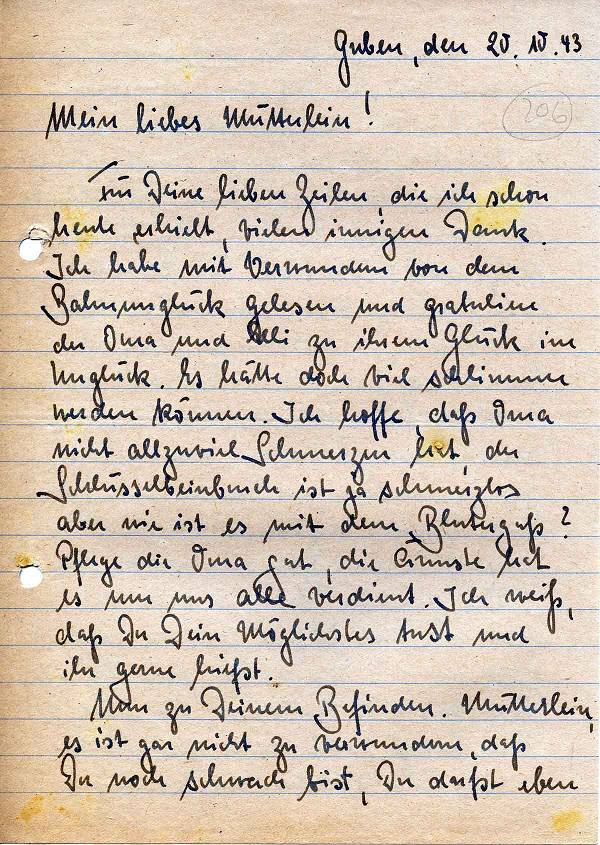 Guben, den 20.10.43
206
Mein liebes Mütterlein!
Für Deine lieben Zeilen, die ich schon
heute erhielt, vielen innigen Dank.
Ich habe mit Verwundern von dem
Bahnunglück gelesen und gratuliere
der Oma und Elli zu ihrem Glück im
Unglück. Es hätte doch viel schlimmer
werden können. Ich hoffe, daß Oma
nicht allzuviel Schmerzen hat, der
Schlüsselbeinbruch ist ja schmerzlos
aber wie ist es mit dem Bluterguß?
Pflege die Oma gut, die Ärmste hat
es um uns alle verdient. Ich weiß,
daß Du Dein Möglichstes tust und
ihr gerne hilfst.
Nun zu Deinem Befinden. Mütterlein,
es ist gar nicht zu verwundern, daß
Du noch schwach bist, Du darfst eben